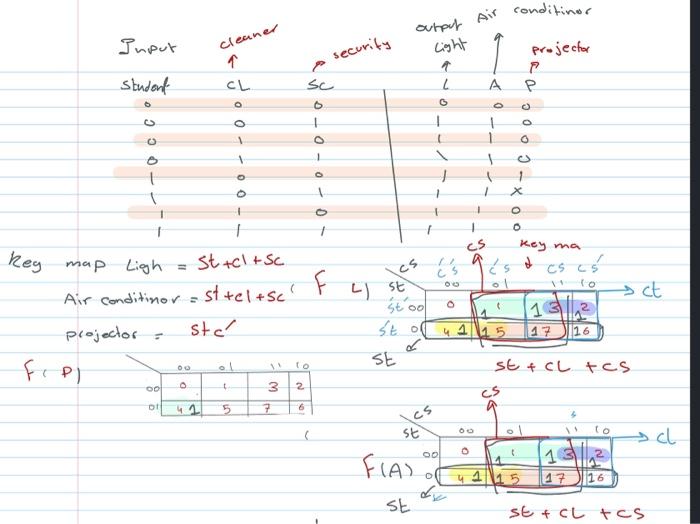 Air conditinor
output
Input cleaner security Light projector
Student CL SC L A P
0 0 0 0 0 0
0 0 1 1 1 0
0 1 0 1 1 0
0 1 1 1 1 0
1 0 0 1 1 1
1 0 1 1 1 X
1 1 0 1 1 0
1 1 1 1 1 0
Key map Ligh = St+cl+Sc
Air conditinor = st+cl+sc
projector = stc'
CS Key ma
F L) cs st c's' c's cs cs'
00 01 11 10 ct
s't' 00 0 1 1 1 3 1 2
s't 01 4 1 1 5 1 7 1 6
St
st + CL + CS
F( P)
00 01 11 10
00 0 1 3 2
01 4 1 5 7 6
CS
cs st 00 01 11 10 cl
F(A) 00 0 1 1 1 3 1 2
01 4 1 1 5 1 7 1 6
St
st + CL + CS